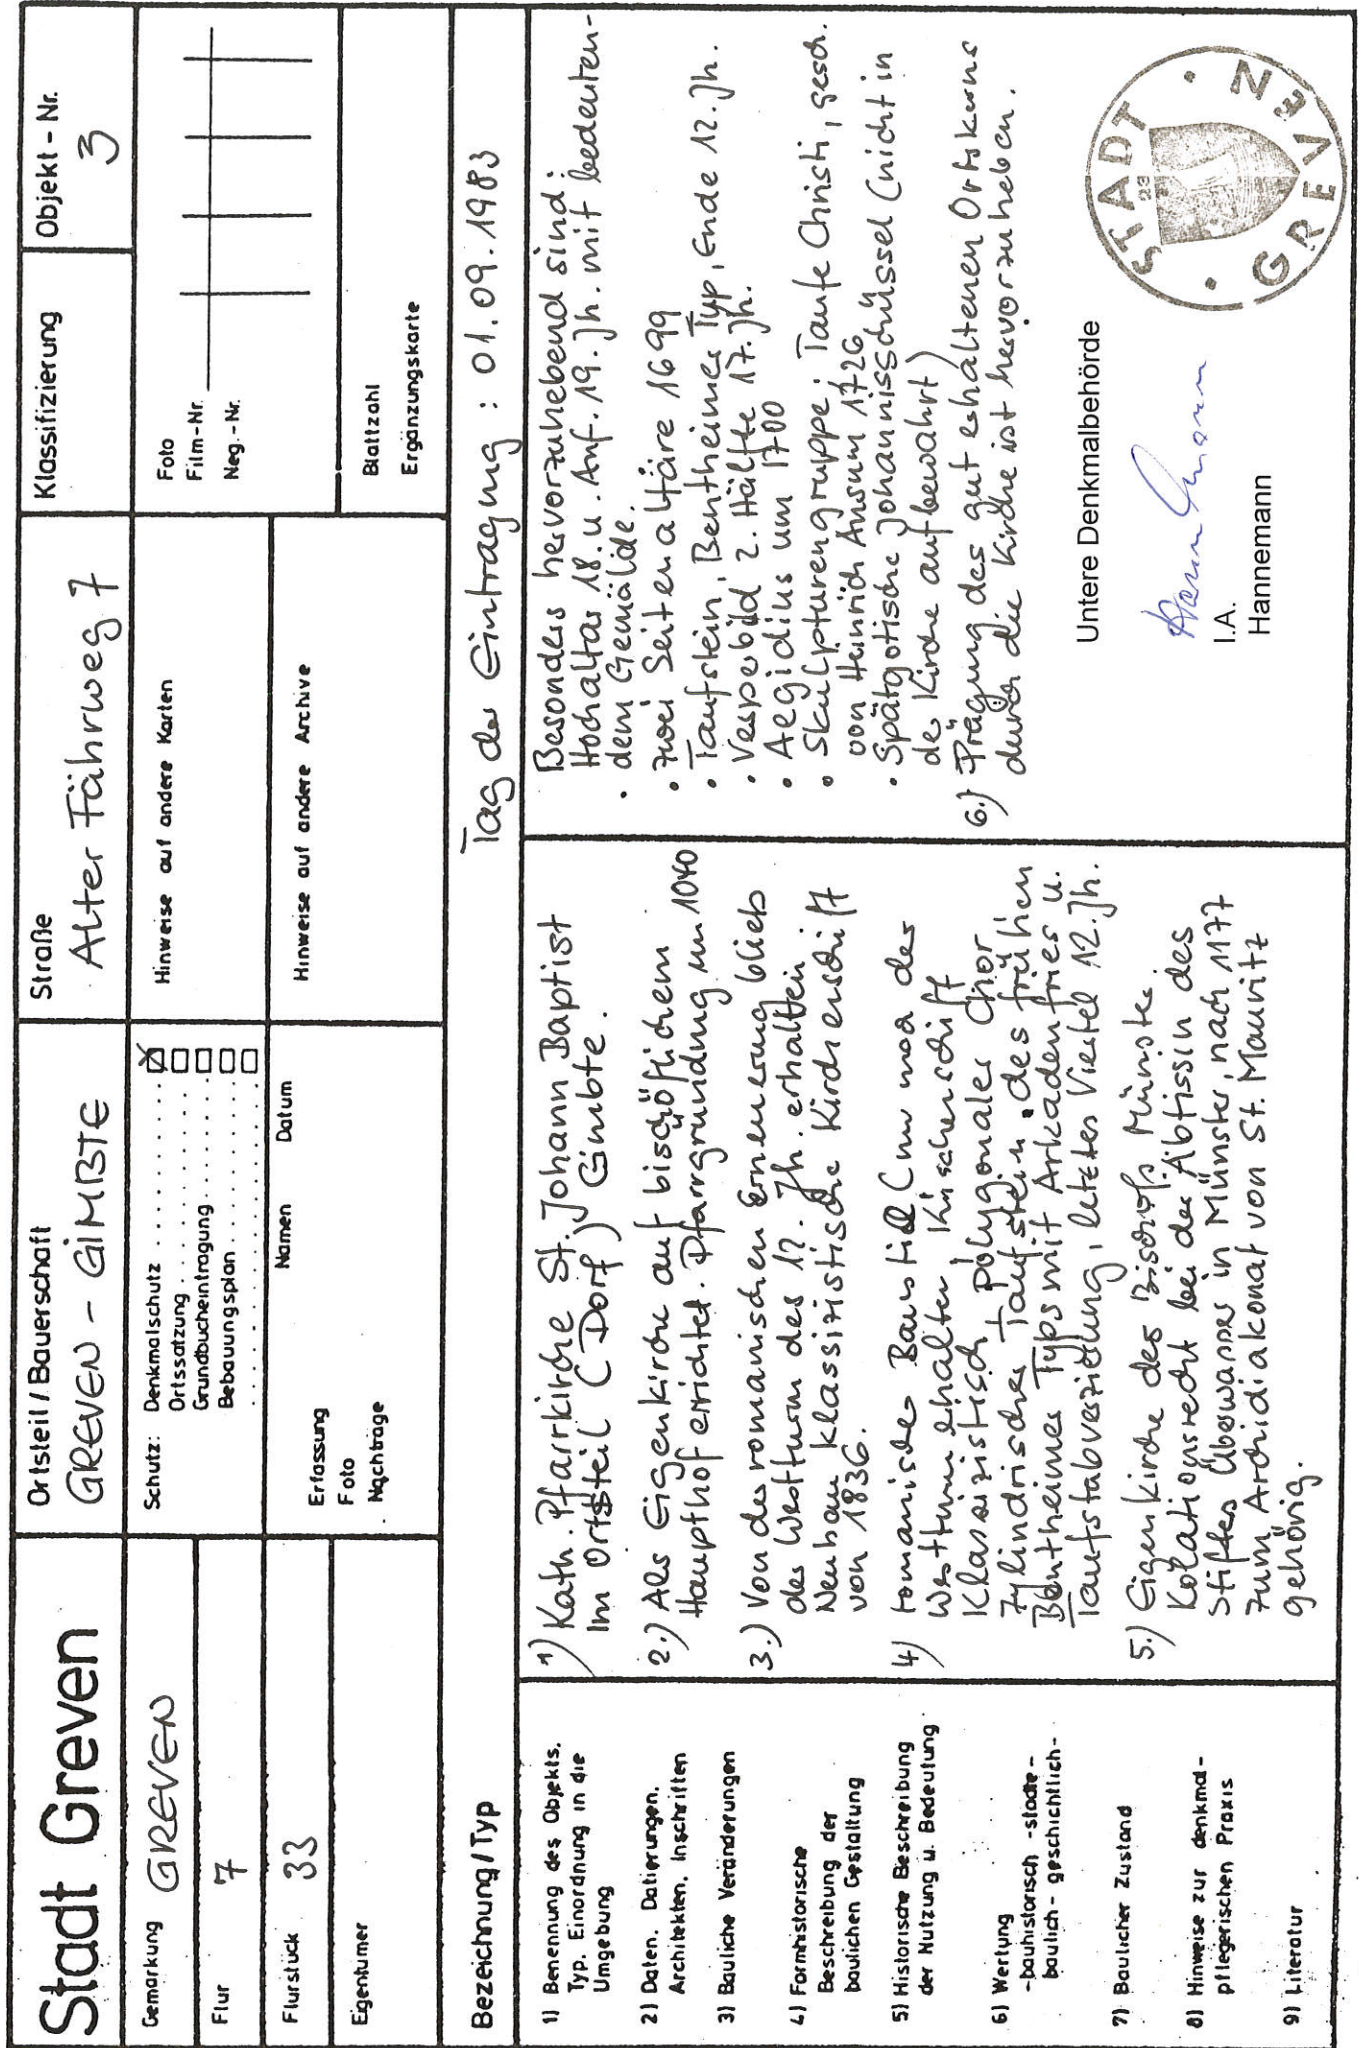 Stadt Greven
Ortsteil / Bauerschaft
GREVEN - GIMBTE
Straße
Alter Fährweg 7
Klassifizierung
Objekt - Nr.
3
Gemarkung GREVEN
Flur 7
Flurstück 33
Eigentümer
Schutz: Denkmalschutz
Ortssatzung
Grundbucheintragung
Bebauungsplan
Namen Datum
Erfassung
Foto
Nachträge
Hinweise auf andere Karten
Hinweise auf andere Archive
Foto
Film-Nr.
Neg.-Nr.
Blattzahl
Ergänzungskarte
Bezeichnung / Typ
Tag der Eintragung : 01.09.1983
1) Benennung des Objekts.
Typ. Einordnung in die
Umgebung
2) Daten. Datierungen.
Architekten. Inschriften
3) Bauliche Veränderungen
4) Formhistorische
Beschreibung der
baulichen Gestaltung
5) Historische Beschreibung
der Nutzung u. Bedeutung
6) Wertung
-bauhistorisch -städte-
baulich - geschichtlich-
7) Baulicher Zustand
8) Hinweise zur denkmal-
pflegerischen Praxis
9) Literatur
1) Kath. Pfarrkirche St. Johann Baptist
im Ortsteil (Dorf) Gimbte.
2.) Als Eigenkirche auf bischöflichem
Haupthof errichtet. Pfarrgründung um 1040
3.) Von der romanischen Erneuerung blieb
der Westturm des 12. Jh. erhalten
Neubau klassizistische Kirchenschiff
von 1836.
4) romanischer Baustil (nur noch der
Westturm erhalten, Kirchenschiff
klassizistisch, polygonaler Chor,
Zylindrischer Taufstein des frühen
Bentheimer Typs mit Arkadenfries u.
Taufstabverzierung, letztes Viertel 12. Jh.
5.) Eigenkirche des Bischofs Münster
Kolationsrecht bei der Äbtissin des
Stiftes Überwasser in Münster, nach 1177
zum Archidiakonat von St. Mauritz
gehörig.
Besonders hervorzuhebend sind:
Hochaltar 18. u. Anf. 19. Jh. mit bedeuten-
dem Gemälde.
• zwei Seitenaltäre 1699
• Taufstein, Bentheimer Typ, Ende 12. Jh.
• Vesperbild 2. Hälfte 17. Jh.
• Aegidius um 1700
• Skulpturengruppe: Taufe Christi, gesch.
von Heinrich Ansum 1726
• Spätgotische Johannisschüssel (nicht in
der Kirche aufbewahrt)
6.) Prägung des gut erhaltenen Ortskerns
durch die Kirche ist hervorzuheben.
Untere Denkmalbehörde
Hannemann
I.A.
Hannemann
STADT
23
GREVEN